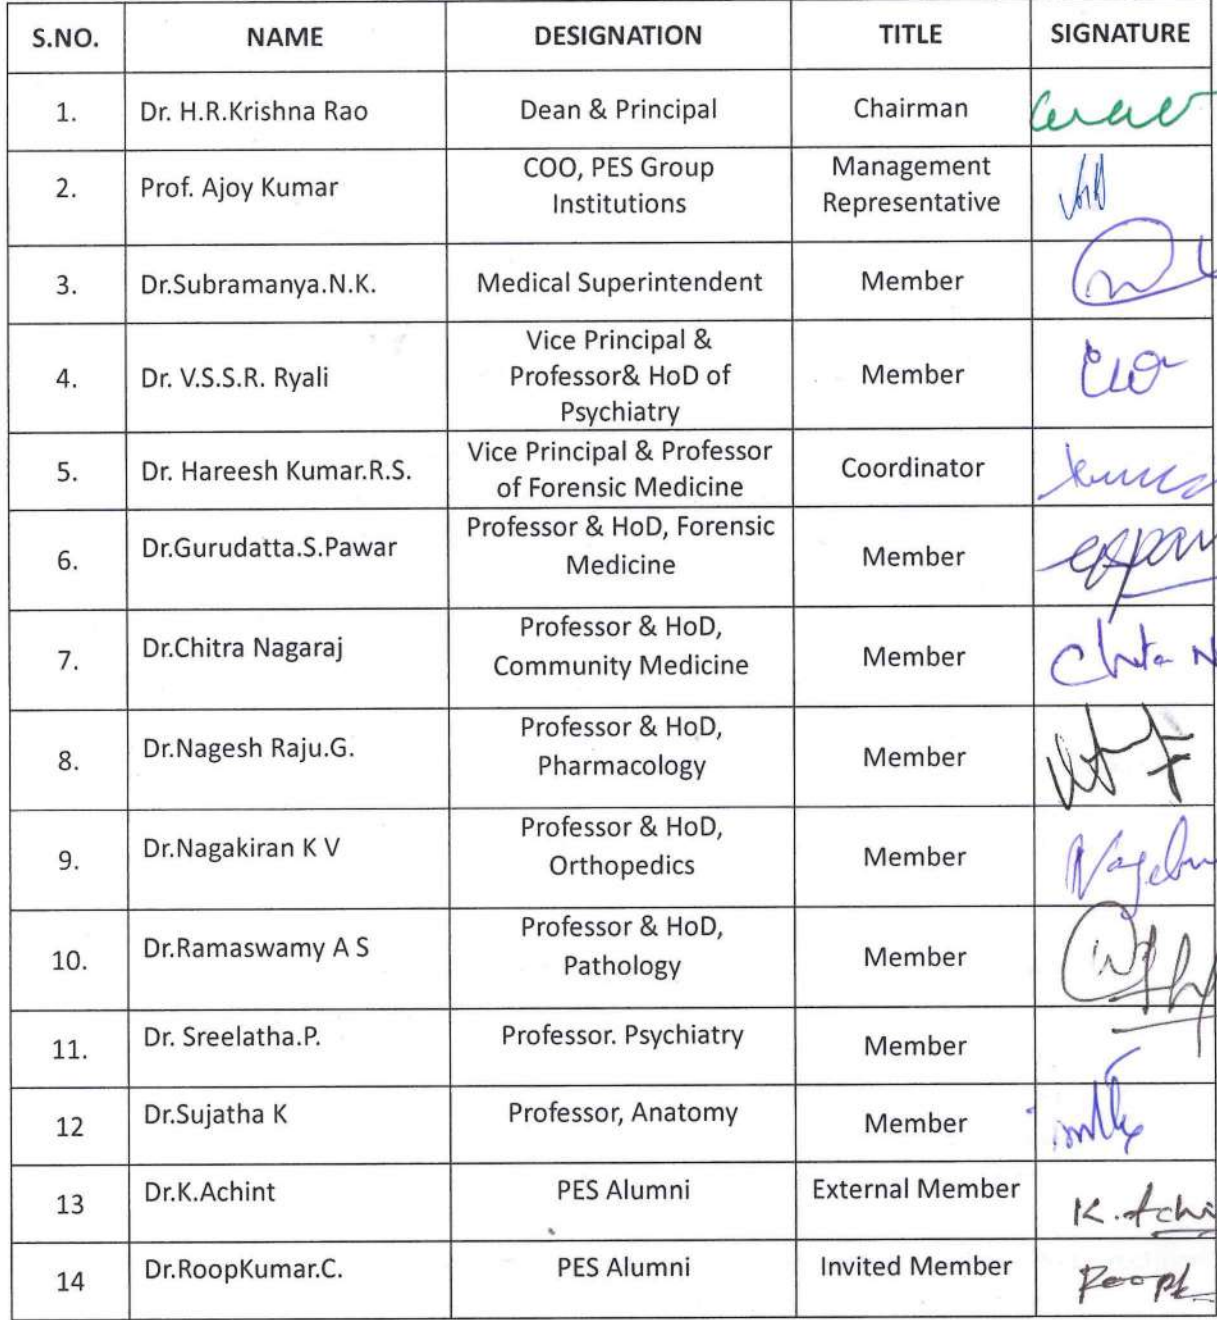 S.NO. NAME DESIGNATION TITLE SIGNATURE
1. Dr. H.R.Krishna Rao Dean & Principal Chairman
2. Prof. Ajoy Kumar COO, PES Group Institutions Management Representative
3. Dr.Subramanya.N.K. Medical Superintendent Member
4. Dr. V.S.S.R. Ryali Vice Principal & Professor& HoD of Psychiatry Member
5. Dr. Hareesh Kumar.R.S. Vice Principal & Professor of Forensic Medicine Coordinator
6. Dr.Gurudatta.S.Pawar Professor & HoD, Forensic Medicine Member
7. Dr.Chitra Nagaraj Professor & HoD, Community Medicine Member
8. Dr.Nagesh Raju.G. Professor & HoD, Pharmacology Member
9. Dr.Nagakiran K V Professor & HoD, Orthopedics Member
10. Dr.Ramaswamy A S Professor & HoD, Pathology Member
11. Dr. Sreelatha.P. Professor. Psychiatry Member
12 Dr.Sujatha K Professor, Anatomy Member
13 Dr.K.Achint PES Alumni External Member K.Achi
14 Dr.RoopKumar.C. PES Alumni Invited Member Roopk